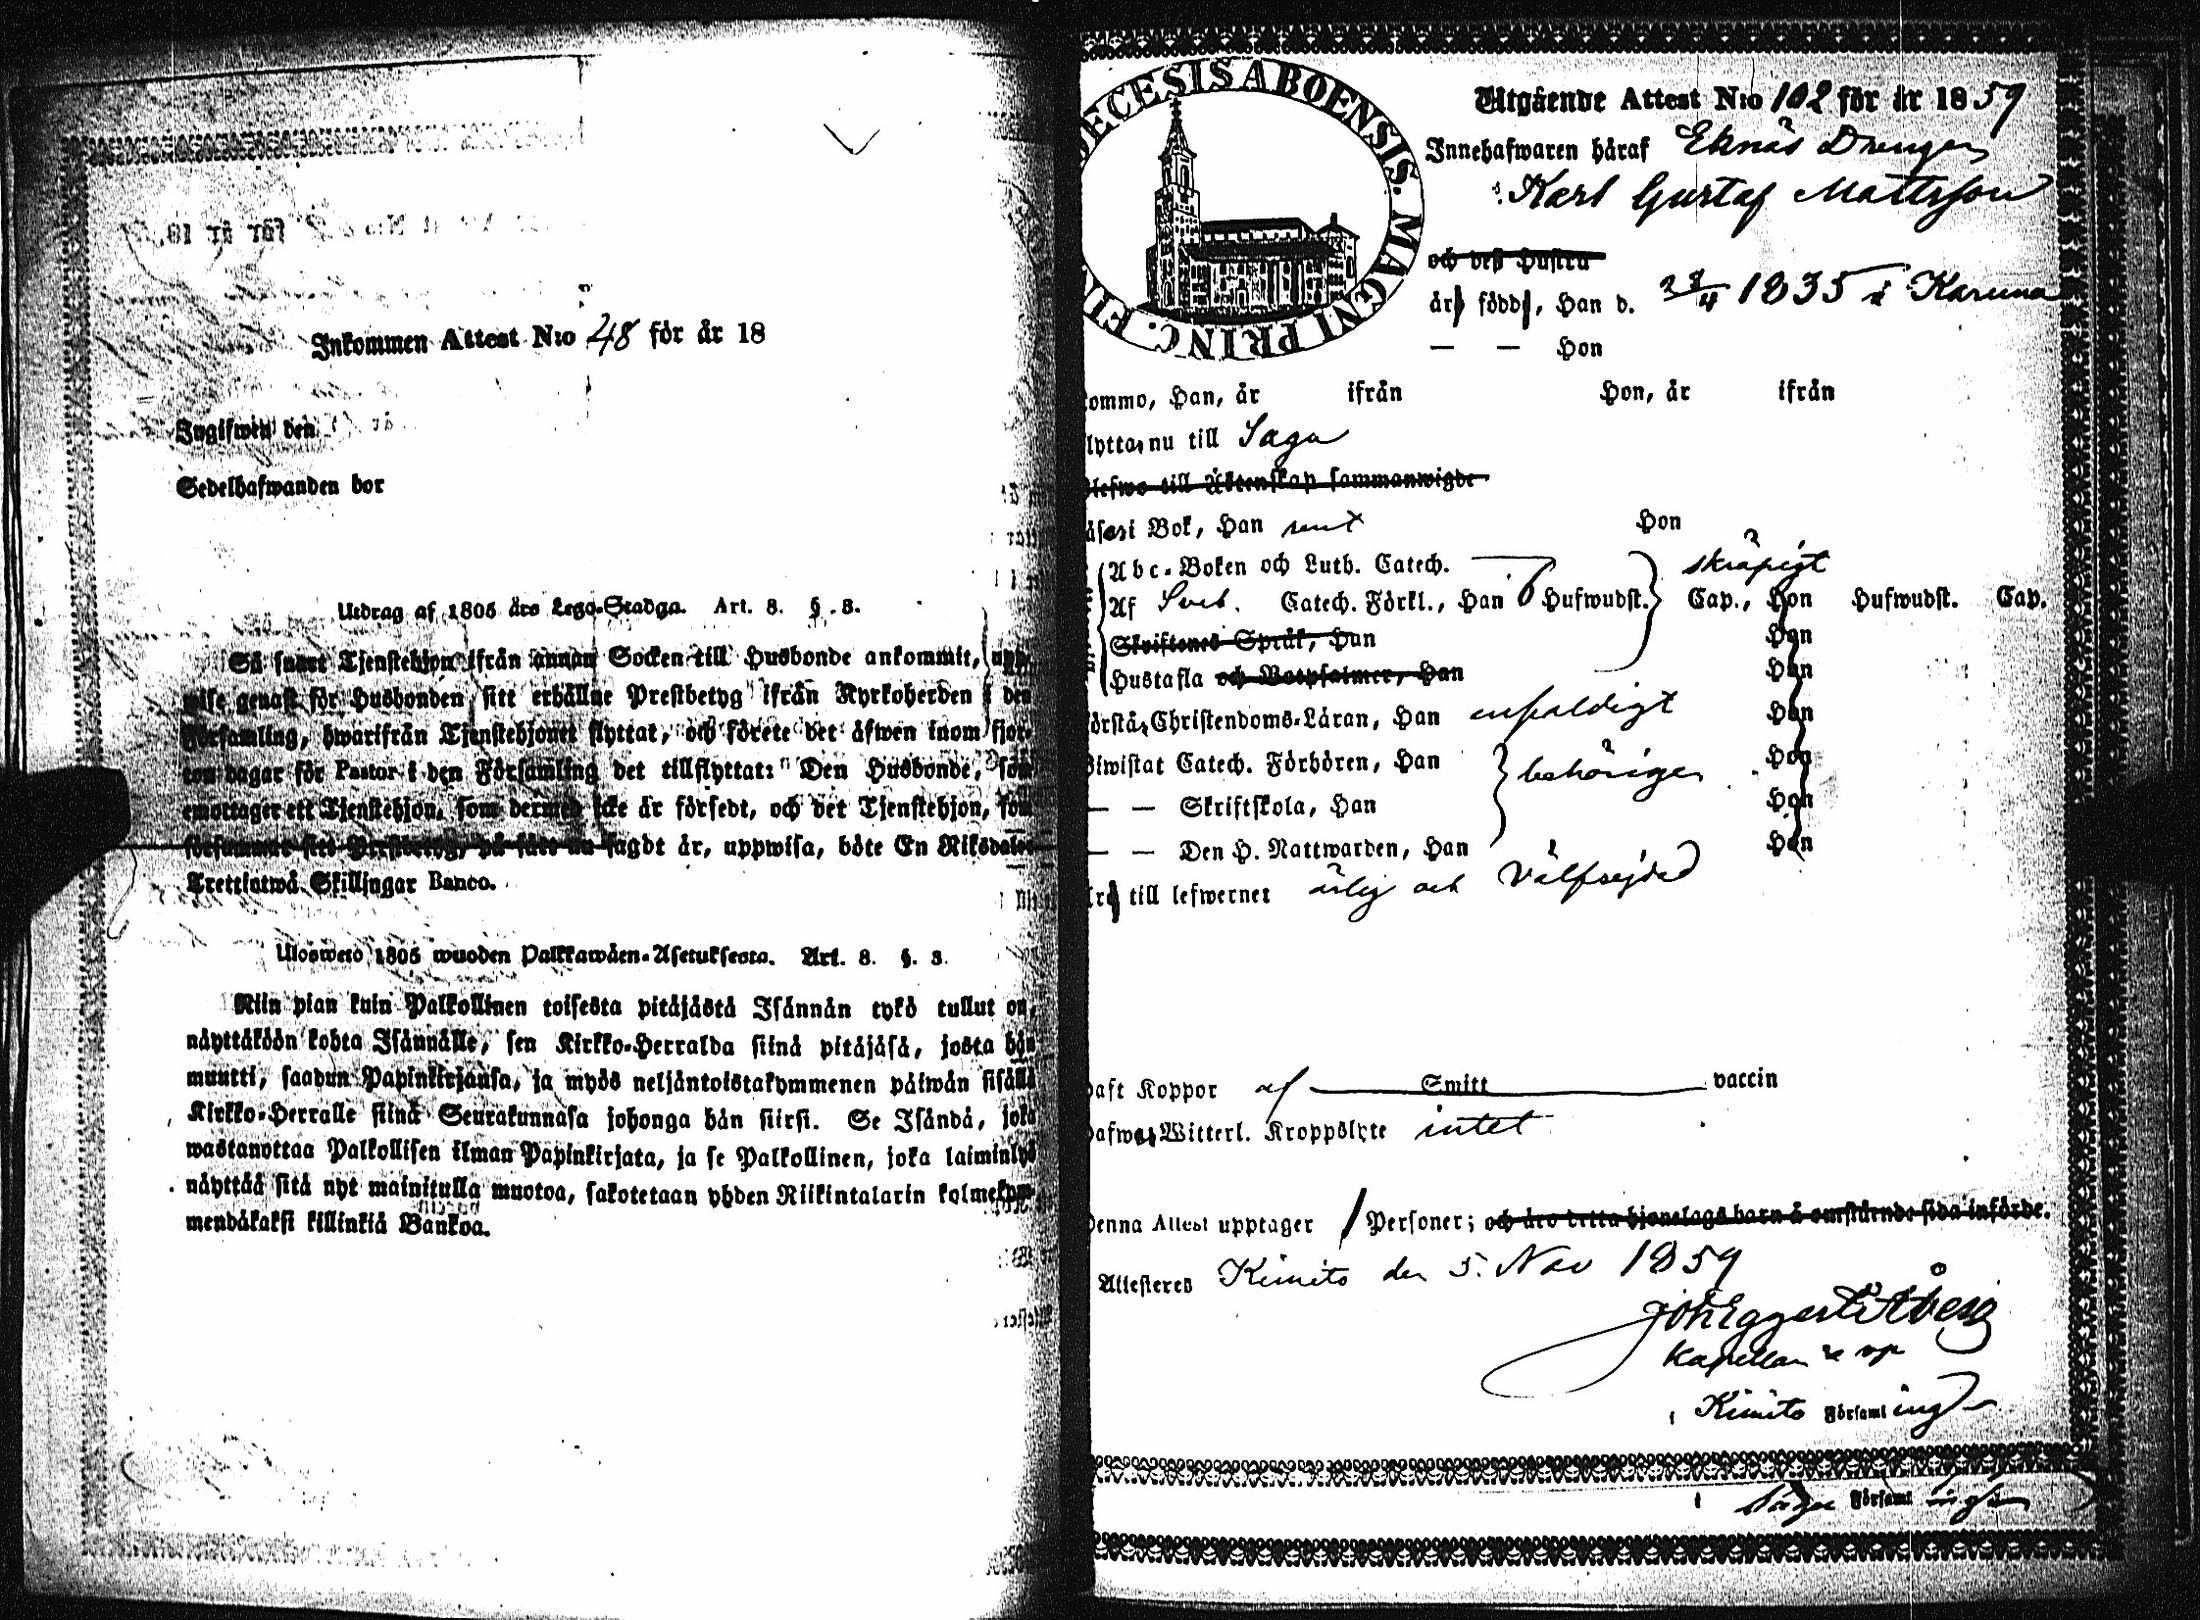 Inkommen Attest N:o 48 för år 18
Ingifwen den
Sedelhafwanden bor
Utdrag af 1805 års Lego-Stadga. Art. 8. §. 3.
Så snart Tjenstehjon ifrån annan Socken till Husbonde ankommit, upp-
wise genast för Husbonden sitt erhållne Prestbetyg ifrån Kyrkoherden i den
Församling, hwarifrån Tjenstehjonet flyttat, och förete det äfwen inom fjor-
ton dagar för Pastor i den Församling det tillflyttat: Den Husbonde, som
emottager ett Tjenstehjon, som dermed icke är försedt, och det Tjenstehjon, som
försummar sitt Prestbetyg, på sätt nu sagdt är, uppwisa, böte En Riksdaler
Trettiotwå Skillingar Banco.
Ulosweto 1805 wuoden Palkkawäen-Asetuksesta. Art. 8. §. 3.
Niin pian kuin Palkollinen toisesta pitäjästä Isännän tykö tullut on,
näyttäköön kohta Isännälle, sen Kirkko-Herralda siinä pitäjäsä, josta hän
muutti, saadun Papinkirjansa, ja myös neljäntoistakymmenen päiwän sisällä
Kirkko-Herralle siinä Seurakunnasa johonga hän siirsi. Se Isändä, joka
wastanottaa Palkollisen ilman Papinkirjata, ja se Palkollinen, joka laiminlyö
näyttää sitä nyt mainitulla muotoa, sakotetaan yhden Riikintalarin kolmekym-
mendäkaksi killinkiä Bankoa.
DECESIS ABOENSIS. MAGNI PRINC. FI
Utgående Attest N:o 102 för år 1859
Innehafwaren häraf Eknäs Drengen
Karl Gustaf Mattsson
och dess Hustru
är född, Han d. 23/4 1835 i Karuna
— — Hon
kommo, Han, år ifrån Hon, år ifrån
flyttar nu till Sagu
blefwo till Äktenskap sammanwigde
läser i Bok, Han rent Hon
Abc-Boken och Luth. Catech. skräpigt
Af Sveb. Catech. Förkl., Han 6 Hufwudst. Cap., Hon Hufwudst. Cap.
Skriftenes Språk, Han Hon
Hustafla och Botpsalmer, Han Hon
förstår Christendoms-Läran, Han enfaldigt Hon
biwistat Catech. Förhören, Han behörigen Hon
— — Skriftskola, Han Hon
— — Den H. Nattwarden, Han Hon
är till lefwernet ärlig och välfrejdad
haft Koppor af Smitt vaccin
hafwer Witterl. Kroppslyte intet
Denna Attest upptager 1 Personer; och äro detta hjonelags barn å omstående sida införde.
Attesteres Kimito den 5. Nov 1859
Joh Eggert Åberg
Kapellan
i Kimito Församling
i Sagu Församling